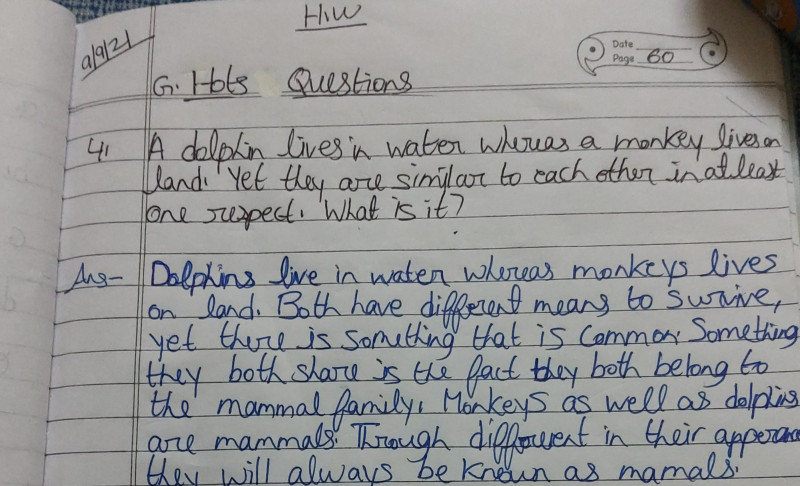 H.W
9/9/21
Date
Page 60
G. Hots Questions
4. A dolphin lives in water whereas a monkey lives on
land. Yet they are similar to each other in at least
one respect. What is it?
Ans- Dolphins live in water whereas monkeys lives
on land. Both have different means to survive,
yet there is something that is common. Something
they both share is the fact they both belong to
the mammal family. Monkeys as well as dolphins
are mammals. Through different in their apperance
they will always be known as mamals.